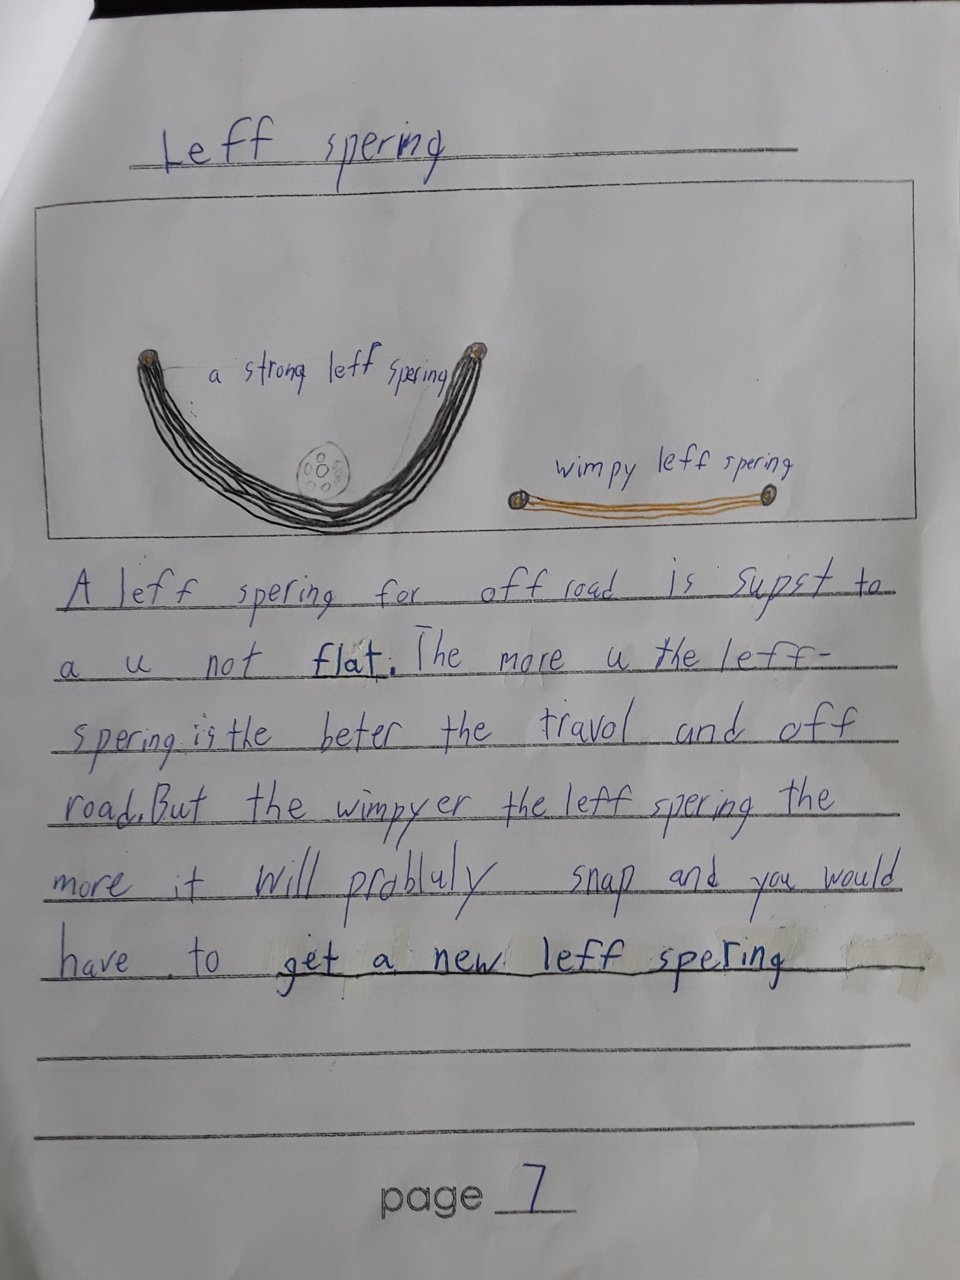 Leff spering
a strong leff spering
wimpy leff spering
A leff spering for off road is supst to
a u not flat. The more u the leff-
spering is the beter the travol and off
road. But the wimpyer the leff spering the
more it will probluly snap and you would
have to get a new leff spering
page 7